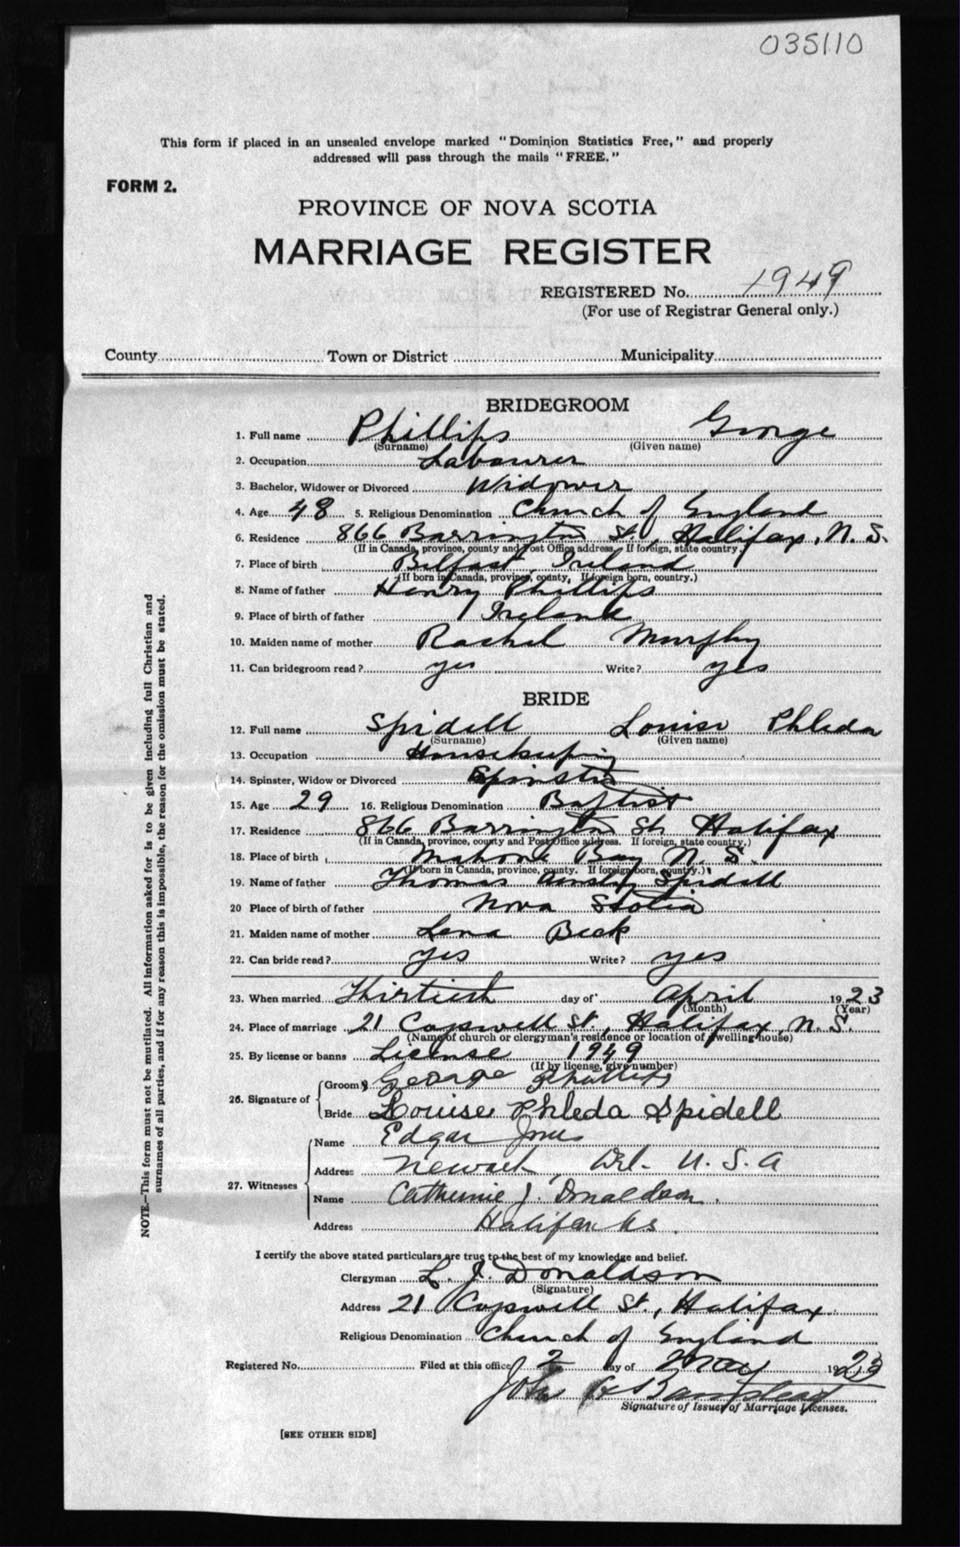 035110
This form if placed in an unsealed envelope marked "Dominion Statistics Free," and properly
addressed will pass through the mails "FREE."
FORM 2.
PROVINCE OF NOVA SCOTIA
MARRIAGE REGISTER
REGISTERED No. 1949
(For use of Registrar General only.)
County Town or District Municipality
BRIDEGROOM
1. Full name Phillips George
(Surname) (Given name)
2. Occupation Labourer
3. Bachelor, Widower or Divorced Widower
4. Age 48 5. Religious Denomination Church of England
6. Residence 866 Barrington St, Halifax, N. S.
(If in Canada, province, county and Post Office address. If foreign, state country.)
7. Place of birth Belfast Ireland
(If born in Canada, province, county, If foreign born, country.)
8. Name of father Henry Phillips
9. Place of birth of father Ireland
10. Maiden name of mother Rachel Murphy
11. Can bridegroom read? yes Write? yes
BRIDE
12. Full name Spidell Louise Phleda
(Surname) (Given name)
13. Occupation Housekeeping
14. Spinster, Widow or Divorced Spinster
15. Age 29 16. Religious Denomination Baptist
17. Residence 866 Barrington St. Halifax
(If in Canada, province, county and Post Office address. If foreign, state country.)
18. Place of birth Mahone Bay N. S.
(If born in Canada, province, county. If foreign born, country.)
19. Name of father Thomas Spidell
20 Place of birth of father Nova Scotia
21. Maiden name of mother Lena Beck
22. Can bride read? yes Write? yes
23. When married Thirtieth day of April 1923
(Month) (Year)
24. Place of marriage 21 Cogswell St., Halifax, N. S.
(Name of church or clergyman's residence or location of dwelling house)
25. By license or banns License 1949
(If by license, give number)
26. Signature of Groom George Phillips
Bride Louise Phleda Spidell
27. Witnesses Name Edgar Jones
Address Newark, Del. U. S. A
Name Catherine J. Donaldson.
Address Halifax N.S.
I certify the above stated particulars are true to the best of my knowledge and belief.
Clergyman L. J. Donaldson
(Signature)
Address 21 Cogswell St., Halifax
Religious Denomination Church of England
Registered No. Filed at this office 2 day of May 1923
John H Barnstead
Signature of Issuer of Marriage Licenses.
[SEE OTHER SIDE]
NOTE.—This form must not be mutilated. All information asked for is to be given including full Christian and
surnames of all parties, and if for any reason this is impossible, the reason for the omission must be stated.